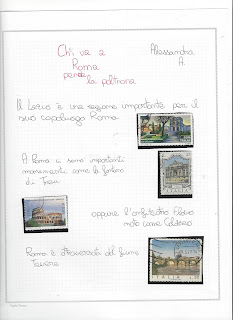 Chi va a
Roma
perde
la poltrona
Alessandra
A.
Il Lazio è una regione importante per il
suo capoluogo Roma
A Roma ci sono importanti
monumenti come la fontana
di Trevi
oppure l'anfiteatro Flavio
noto come Colosseo
Roma è attraversata dal fiume
Tevere
ITALIA